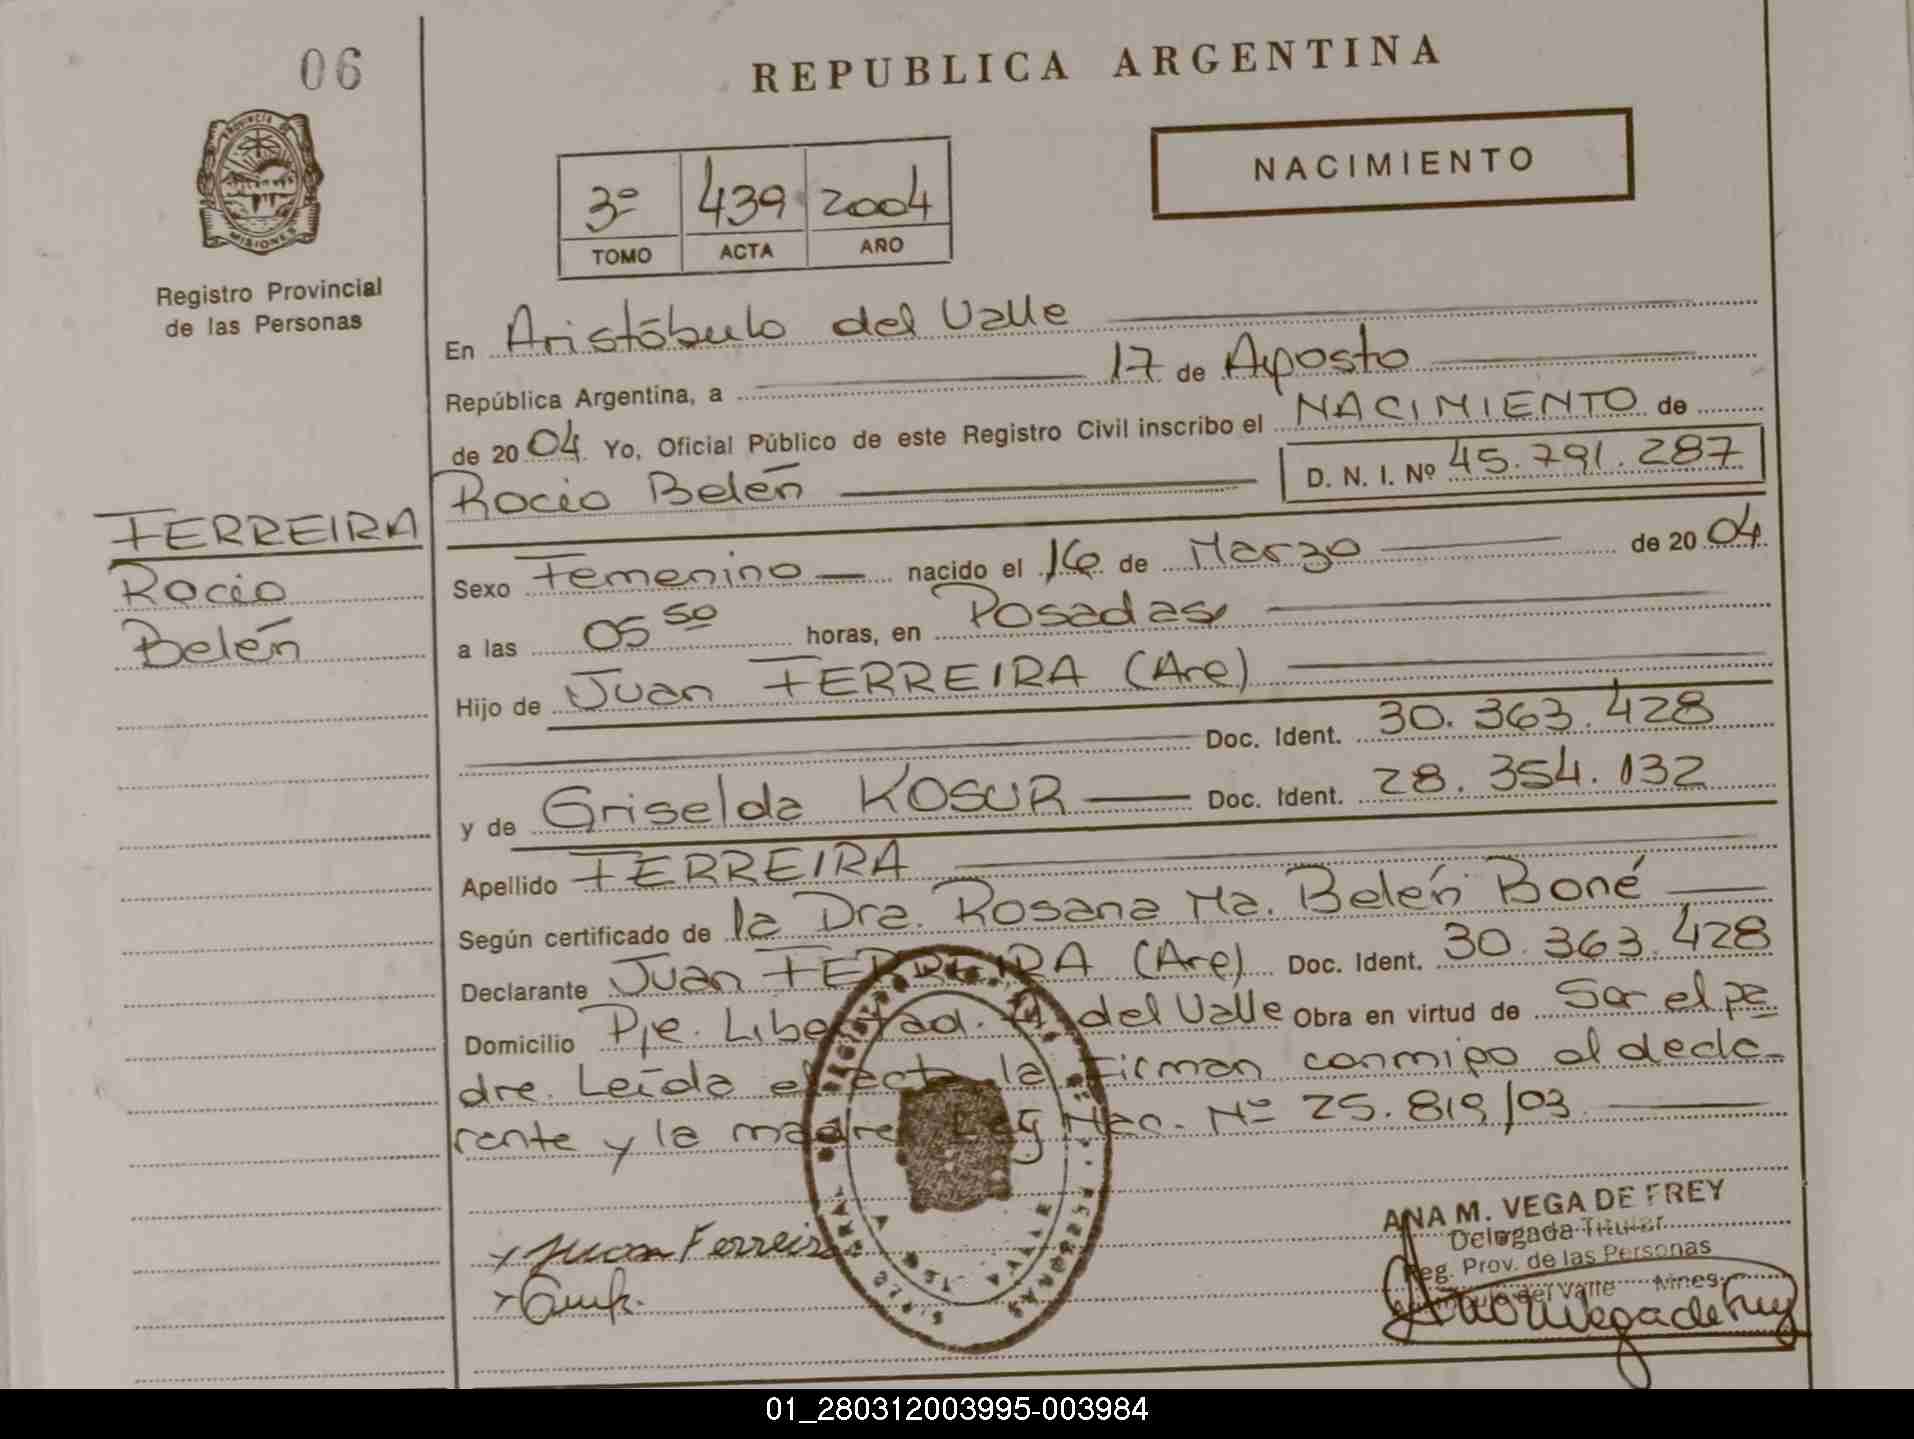 06
REPUBLICA ARGENTINA
PROVINCIA DE
MISIONES
NACIMIENTO
3º 439 2004
TOMO ACTA AÑO
Registro Provincial
de las Personas
En Aristóbulo del Valle
República Argentina, a 17 de Agosto
de 2004 Yo, Oficial Público de este Registro Civil inscribo el NACIMIENTO de
Rocío Belén D. N. I. Nº 45.791.287
FERREIRA
Rocío
Belén
Sexo Femenino nacido el 16 de Marzo de 2004
a las 05 50 horas, en Posadas
Hijo de Juan FERREIRA (Arg)
Doc. Ident. 30.363.428
y de Griselda KOSUR Doc. Ident. 28.354.132
Apellido FERREIRA
Según certificado de la Dra. Rosana Ma. Belén Boné
Declarante Juan FERREIRA (Arg) Doc. Ident. 30.363.428
Domicilio Pje. Libertad. A. del Valle Obra en virtud de Ser el pa
dre. Leída el acta la firman conmigo el decla-
rante y la madre. Leg Nac. Nº 25.819/03
Juan Ferreira
ANA M. VEGA DE FREY
Delegada Titular
Reg. Prov. de las Personas
Aristóbulo del Valle Mnes.
01_280312003995-003984